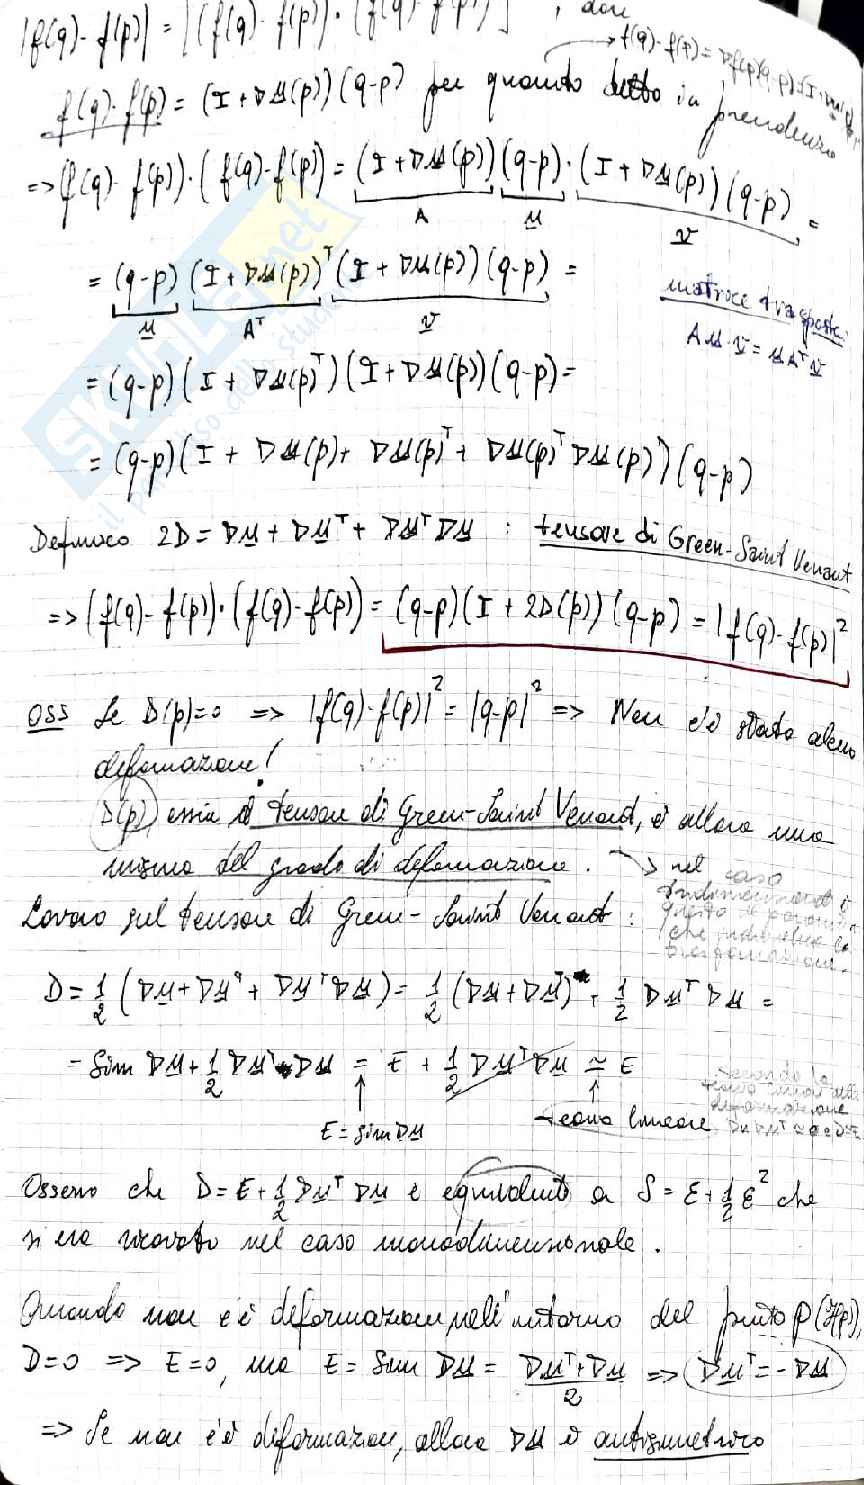 |f(q)-f(p)| = [(f(q)-f(p))·(f(q)-f(p))] , dove
→ f(q)-f(p) = ∇f(p)(q-p) =
f(q)-f(p) = (I+∇u(p))(q-p) per quanto detto in precedenza
=> (f(q)-f(p))·(f(q)-f(p)) = (I+∇u(p))(q-p)·(I+∇u(p))(q-p) =
A u v
= (q-p)(I+∇u(p))ᵀ(I+∇u(p))(q-p) =
u Aᵀ v
matrice trasposta:
Au·v = uAᵀv
= (q-p)(I+∇u(p)ᵀ)(I+∇u(p))(q-p) =
= (q-p)(I+∇u(p)+∇u(p)ᵀ+∇u(p)ᵀ∇u(p))(q-p)
Definisco 2D = ∇u+∇uᵀ+∇uᵀ∇u : tensore di Green-Saint Venant
=> (f(q)-f(p))·(f(q)-f(p)) = (q-p)(I+2D(p))(q-p) = |f(q)-f(p)|²
OSS Se D(p)=0 => |f(q)-f(p)|² = |q-p|² => Non c'è stata alcuna
deformazione!
D(p), ossia il tensore di Green-Saint Venant, è allora una
misura del grado di deformazione. → nel caso
questo
che individua la
Lavoro sul tensore di Green-Saint Venant:
D = 1/2 (∇u+∇uᵀ+∇uᵀ∇u) = 1/2 (∇u+∇uᵀ) + 1/2 ∇uᵀ∇u =
= Sim ∇u + 1/2 ∇uᵀ∇u = E + 1/2 ∇uᵀ∇u ≃ E
E = sim ∇u
teoria lineare
secondo la
teoria
deformazione
Osservo che D = E + 1/2 ∇uᵀ∇u è equivalente a δ = ε + 1/2 ε² che
si era ricavato nel caso monodimensionale.
Quando non c'è deformazione nell'intorno del punto p (Hp),
D=0 => E=0, ma E = Sim ∇u = (∇uᵀ+∇u)/2 => ∇uᵀ = -∇u
=> Se non c'è deformazione, allora ∇u è antisimmetrico
SKUOLA.net
il paradiso dello studente